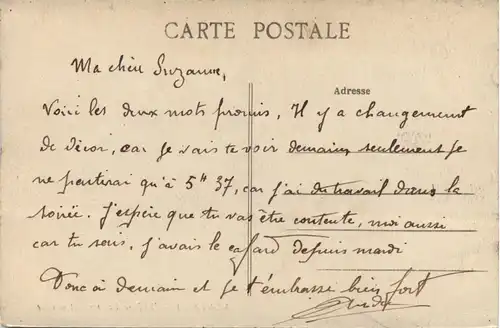 CARTE POSTALE
Ma chère Suzanne,
Adresse
Voici les deux mots promis, Il y a changement
de décor, car je vais te voir demain, seulement je
ne partirai qu'à 5H 37, car j'ai du travail dans la
soirée. J'espère que tu vas être contente, moi aussi
car tu sais, j'avais le cafard depuis mardi
Donc à demain et je t'embrasse bien fort